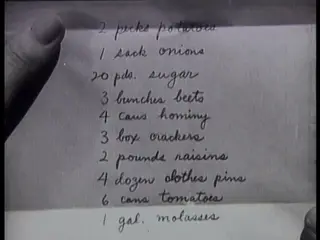 2 pecks potatoes
1 sack onions
20 pds. sugar
3 bunches beets
4 cans hominy
3 box crackers
2 pounds raisins
4 dozen clothes pins
6 cans tomatoes
1 gal. molasses